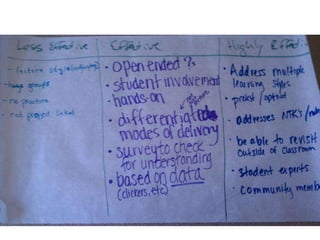 Less Effective
- lecture style
- huge groups
- no practice
- not project based
Effective
• Open ended ?s
• student involvement
• hands-on
• differentiated
modes of delivery
• survey to check
for understanding
• based on data
(clickers, etc)
Highly Effect...
• Address multiple
learning styles
• pretest / optout
• addresses NTK's /
• be able to revisit
outside of classroom
• student experts
• community memb